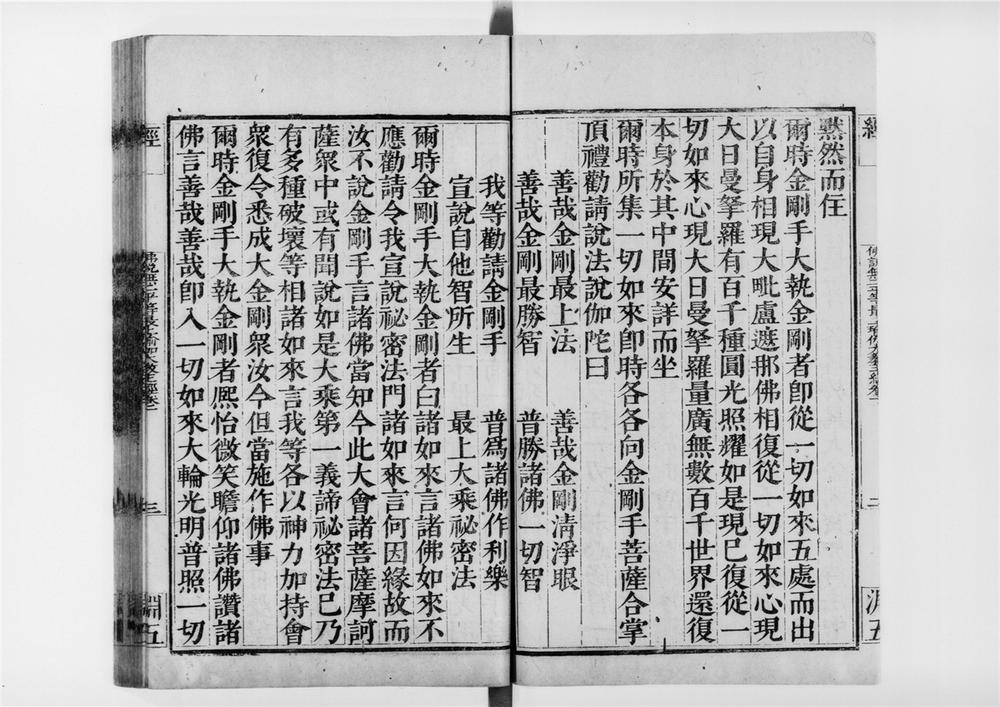 默然而住
爾時金剛手大執金剛者卽從一切如來五處而出
以自身相現大毗盧遮那佛相復從一切如來心現
大日曼拏羅有百千種圓光照耀如是現已復從一
切如來心現大日曼拏羅量廣無數百千世界還復
本身於其中間安詳而坐
爾時所集一切如來卽時各各向金剛手菩薩合掌
頂禮勸請說法說伽陀曰
善哉金剛最上法　善哉金剛清淨眼
善哉金剛最勝智　普勝諸佛一切智
我等勸請金剛手　普爲諸佛作利樂
宣說自他智所生　最上大乘祕密法
爾時金剛手大執金剛者曰諸如來言諸佛如來不
應勸請令我宣說祕密法門諸如來言何因緣故而
汝不說金剛手言諸佛當知今此大會諸菩薩摩訶
薩衆中或有聞說如是大乘第一義諦祕密法已乃
有多種破壞等相諸如來言我等各以神力加持會
衆復令悉成大金剛衆汝今但當施作佛事
爾時金剛手大執金剛者熈怡微笑瞻仰諸佛讚諸
佛言善哉善哉卽入一切如來大輪光明普照一切
經
三
淵五